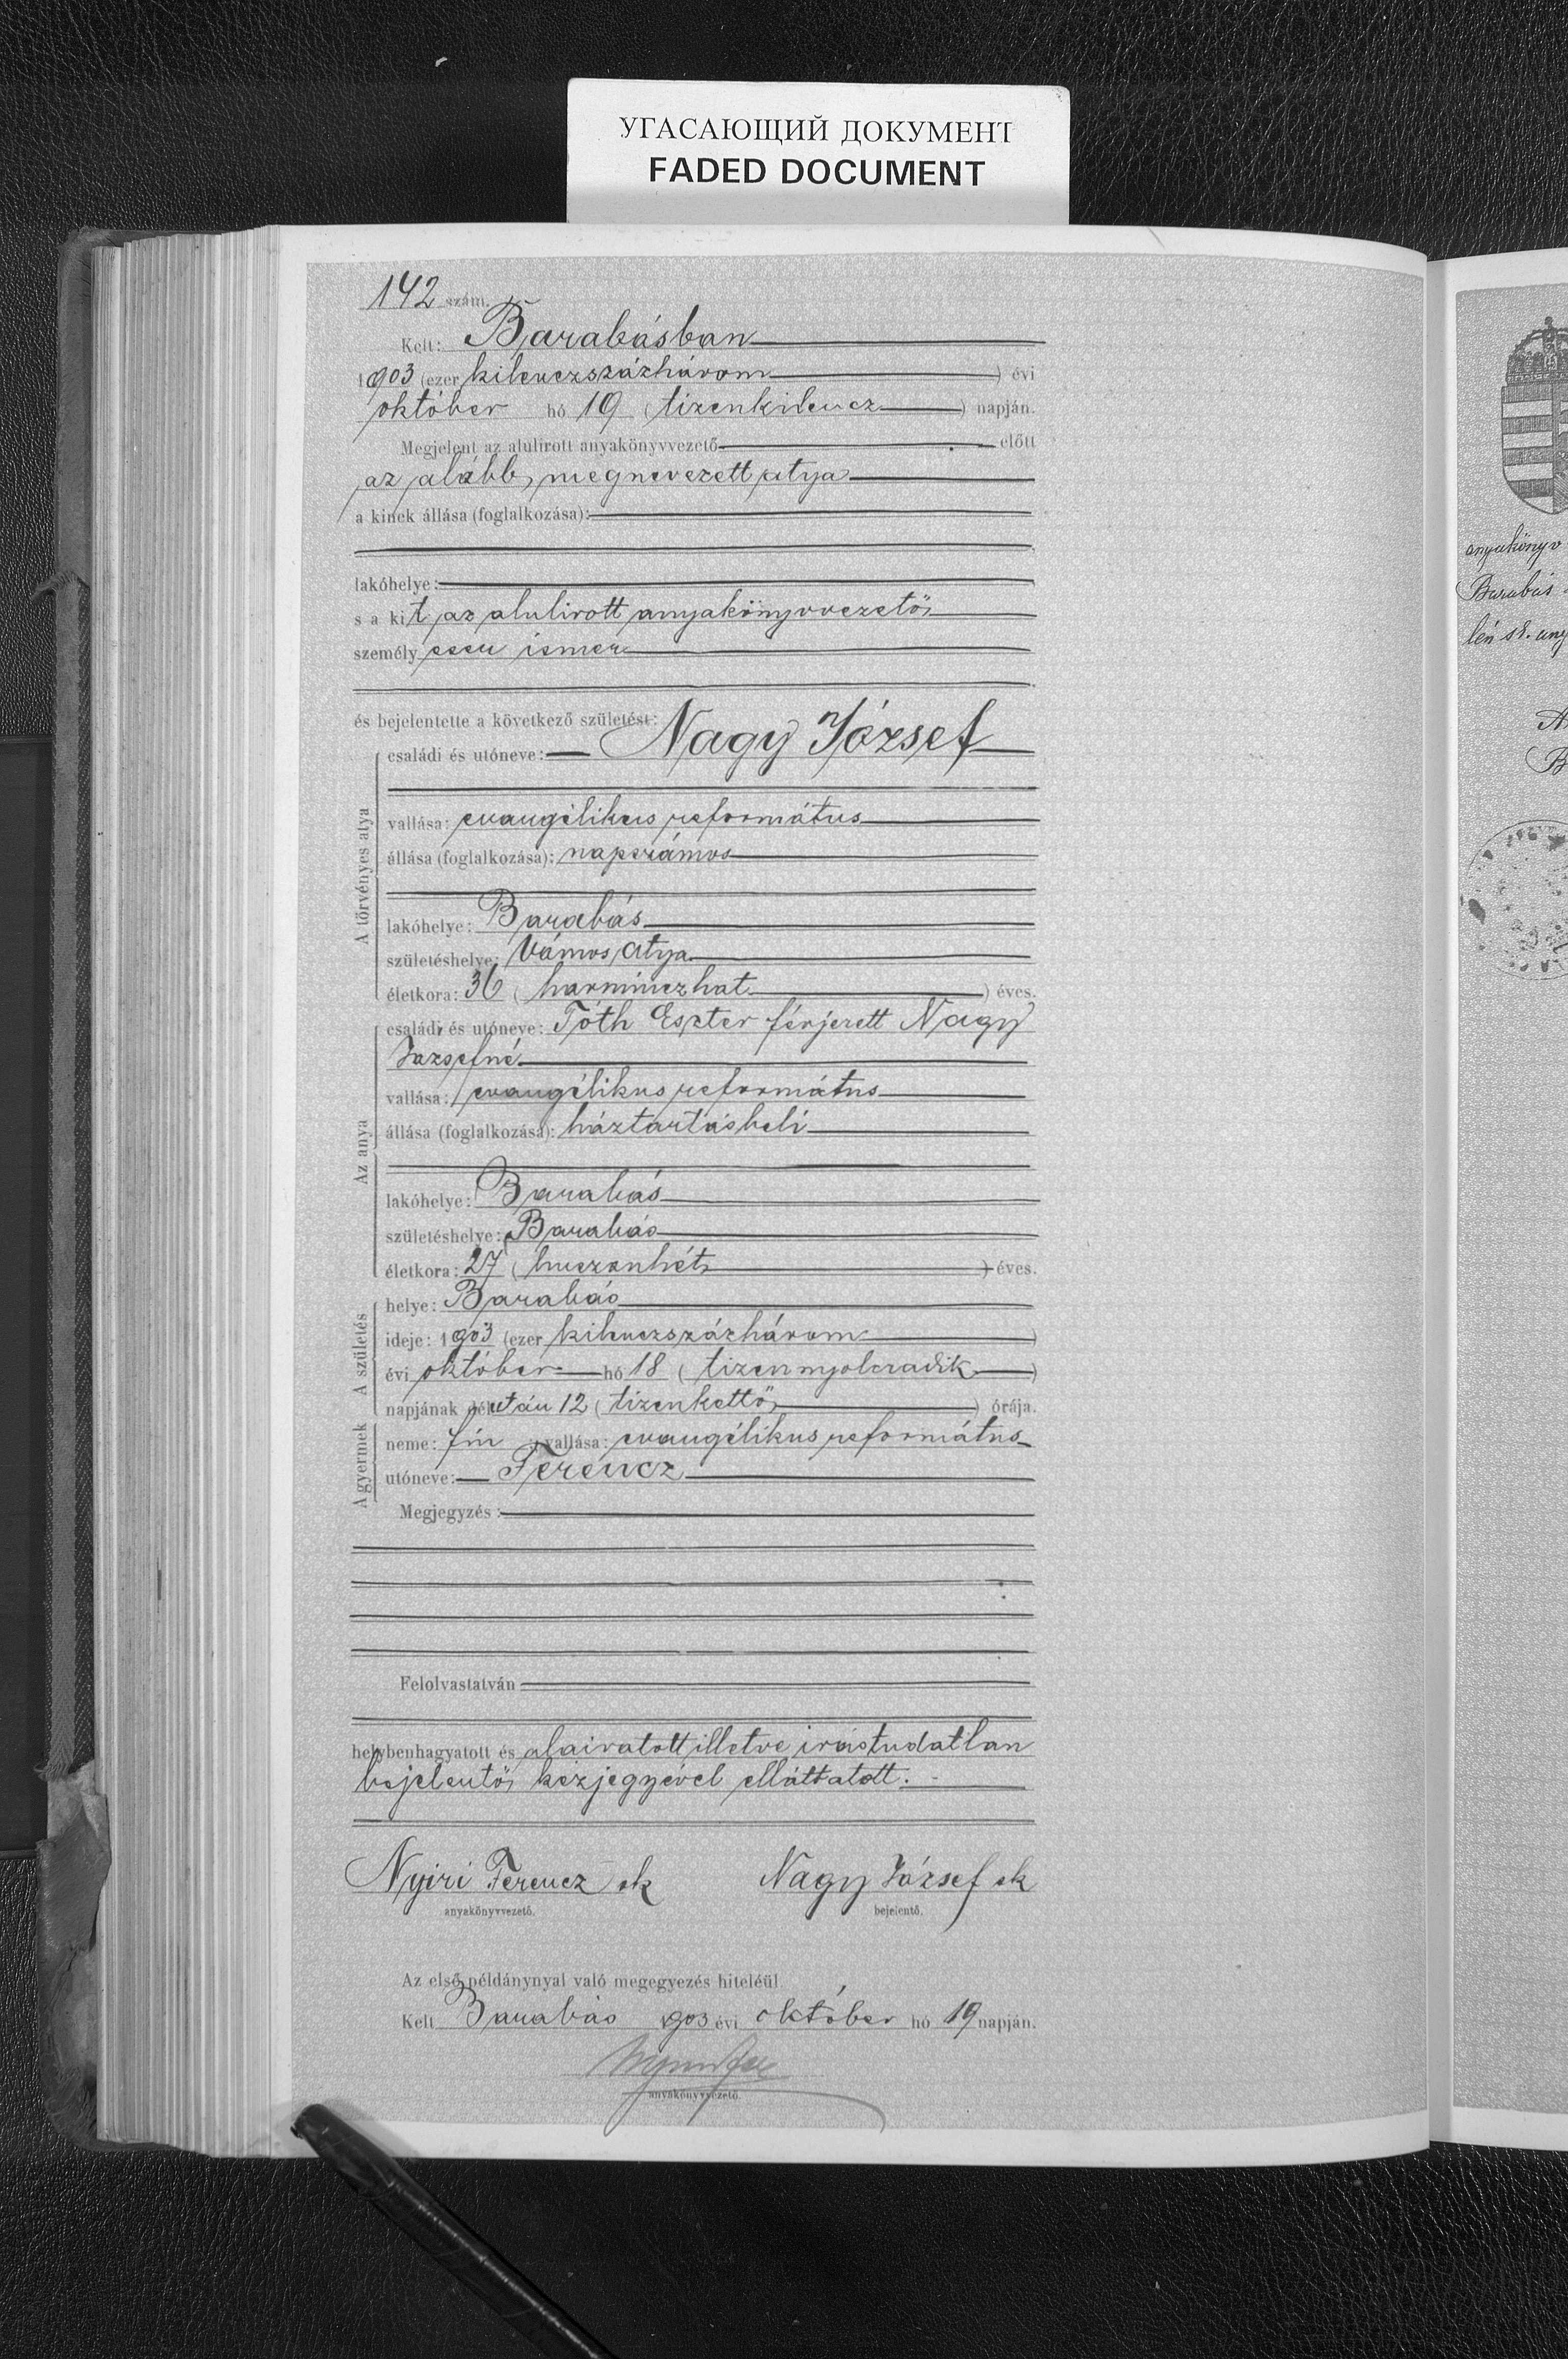 УГАСАЮЩИЙ ДОКУМЕНТ
FADED DOCUMENT
142 szám.
Kelt: Barabásban
1903 (ezer kilenczszázhárom) évi
október hó 19 (tizenkilencz) napján.
Megjelent az alulirott anyakönyvvezető előtt
az alább megnevezett atya
a kinek állása (foglalkozása):
lakóhelye:
s a kit az alulirott anyakönyvvezető
személyesen ismer
és bejelentette a következő születést:
A törvényes atya
családi és utóneve: Nagy József
vallása: evangélikus református
állása (foglalkozása): napszámos
lakóhelye: Barabás
születéshelye: Vámos Atya
életkora: 36 (harminczhat) éves.
Az anya
családi és utóneve: Tóth Eszter férjezett Nagy
Józsefné
vallása: evangélikus református
állása (foglalkozása): háztartásbeli
lakóhelye: Barabás
születéshelye: Barabás
életkora: 27 (huszonhét) éves.
A születés
helye: Barabás
ideje: 1903 (ezer kilenczszázhárom)
évi október hó 18 (tizennyolczadik)
napjának délután 12 (tizenkettő) órája.
A gyermek
neme: fiu vallása: evangélikus református
utóneve: Ferencz
Megjegyzés:
Felolvastatván
helybenhagyatott és alairatott illetve irástudatlan
bejelentő kézjegyével elláttatott.
Nyiri Ferencz sk Nagy József sk
anyakönyvvezető. bejelentő.
Az első példánynyal való megegyezés hiteléül
Kelt Barabás 1903 évi október hó 19 napján.
anyakönyvvezető.
anyakönyv
Barabás